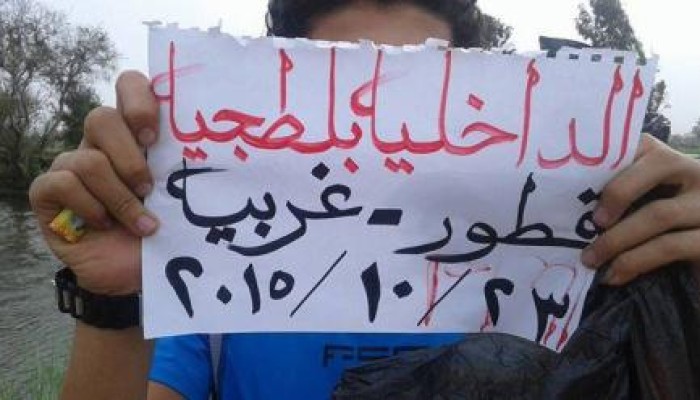 الداخليه بلطجيه
قطور - غربيه
٢٣/١٠/٢٠١٥